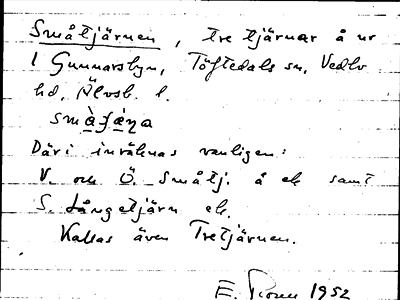 Småtjärnen, tre tjärnar å ur
l Gunnarsbyn, Töftedals sn, Vedbo
hd, Älvsb. l.
Däri inräknas vanligen:
V. och Ö. Småtj. å ek samt
S. Långetjärn ek.
Kallas även Tretjärnen.
E. 1952